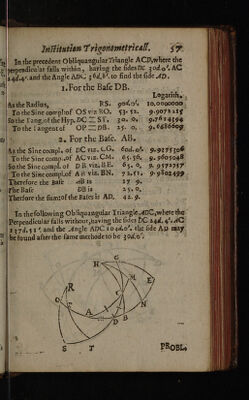 Institution Trigonometricall. 57
In the precedent Obliquangular Triangle ACD, where the
perpendicular falls within, having the sides DC 30d. 0'. AC
24d. 4'. and the Angle ADC 36d. 8'. to find the side AD.
1. For the Base DB.
Logarith.
As the Radius, RS. 90d. 0'. 10,0000000
To the Sine compl. of OS viz RO. 53. 52.
So the Tang. of the Hyp. DC = ST. 30. 0.
To the Tangent of OP = DB. 25. 0.
2. For the Base. AB.
As the Sine compl. of DC viz. CG. 60d. 0'.
To the Sine comp. of AC viz. CM. 65. 56.
So the Sine compl. of DB viz. BE. 65. 0. 9.9572757
To the Sine compl. of AB viz. BN. 72. 51. 9.9802499
Therefore the Base AB is 17 9.
The Base DB is 25. 0.
Therfore the summ of the Bases is AD. 42. 9.
In the following Obliquangular Triangle ADC, where the
Perpendicular falls without, having the sides DC 24d. 4'. AC
the side AD may
be found after the same methode to be 30d. 0'.
H G
R
O
A
D B
E
N
S T
PROBL.